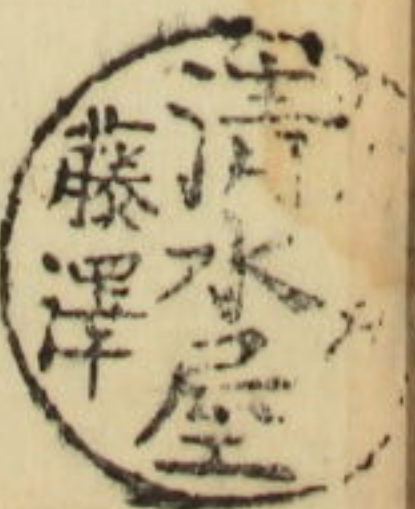 清水屋
藤澤